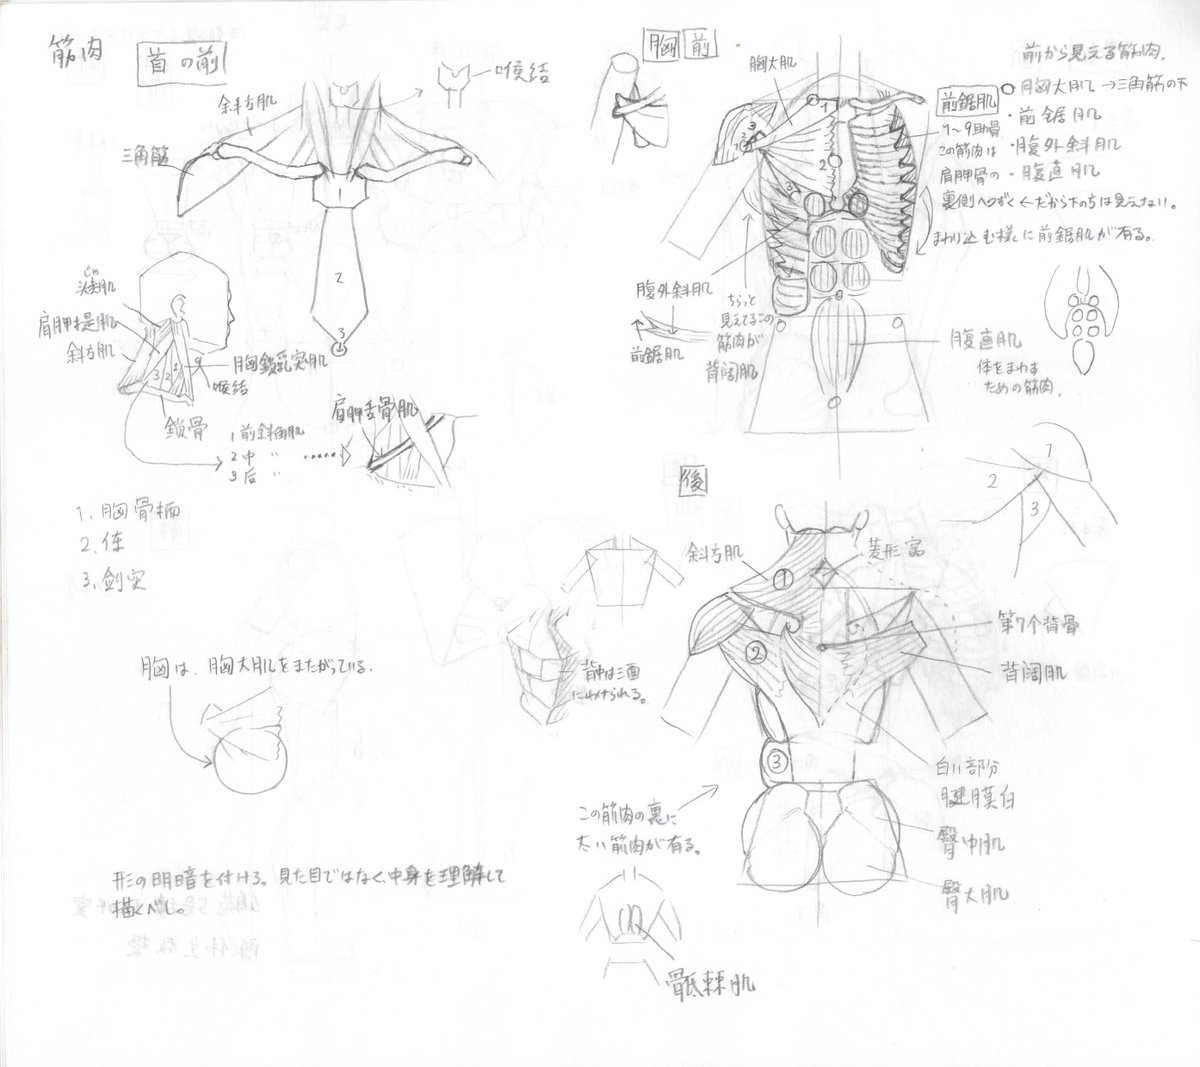 筋肉
首の前
喉結
斜方肌
三角筋
1
2
3
头夹肌
肩胛提肌
斜方肌
胸鎖乳突肌
喉结
3 2 1
鎖骨
1 前斜角肌
2 中 〃
3 后 〃
肩胛舌骨肌
1. 胸骨柄
2. 体
3. 剑突
胸は、胸大肌をまたがっている.
形の明暗を付けろ。見た目ではなく、中身を理解して
描くべし。
胸 前
胸大肌
1
2
3
前から見える筋肉.
○胸大肌→三角筋の下
・前鋸肌
・腹外斜肌
・腹直肌
前鋸肌
1〜9助骨
この筋肉は
肩胛骨の
裏側へつずく←だから下のちは見えない。
まわり込む様に前鋸肌が有る。
腹外斜肌
前鋸肌
ちらっと
見えてるこの
筋肉が
背阔肌
腹直肌
体をまわす
ための筋肉.
後
1
2
3
斜方肌
菱形窩
①
②
③
第7个背骨
背阔肌
背中は三面
にわけられる。
白い部分
腱膜白
臀中肌
臀大肌
この筋肉の裏に
太い筋肉が有る。
骶棘肌